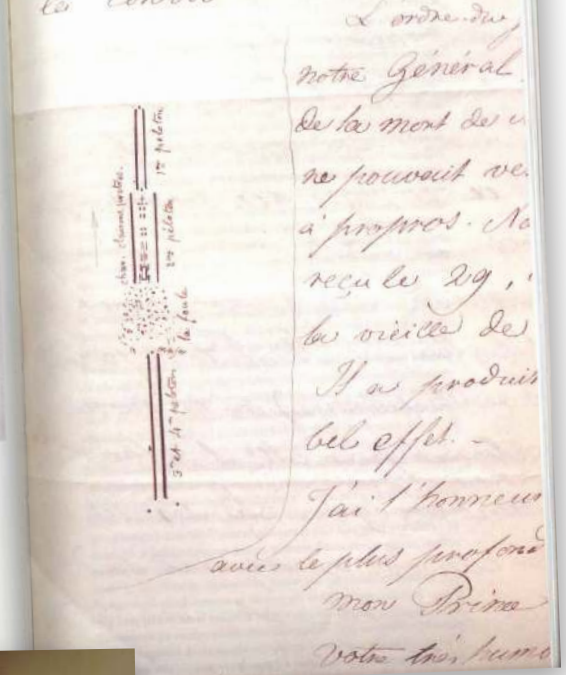 L'ordre du
notre Général
de la mort de
ne pouvait ve
à propros. No
reçu le 29,
la vieille de
Il a produit
bel effet. -
J'ai l'honneur
avec le plus profond
mon Prince
votre très humb
1er peloton
2me peloton
la foule
3e et 4e peloton